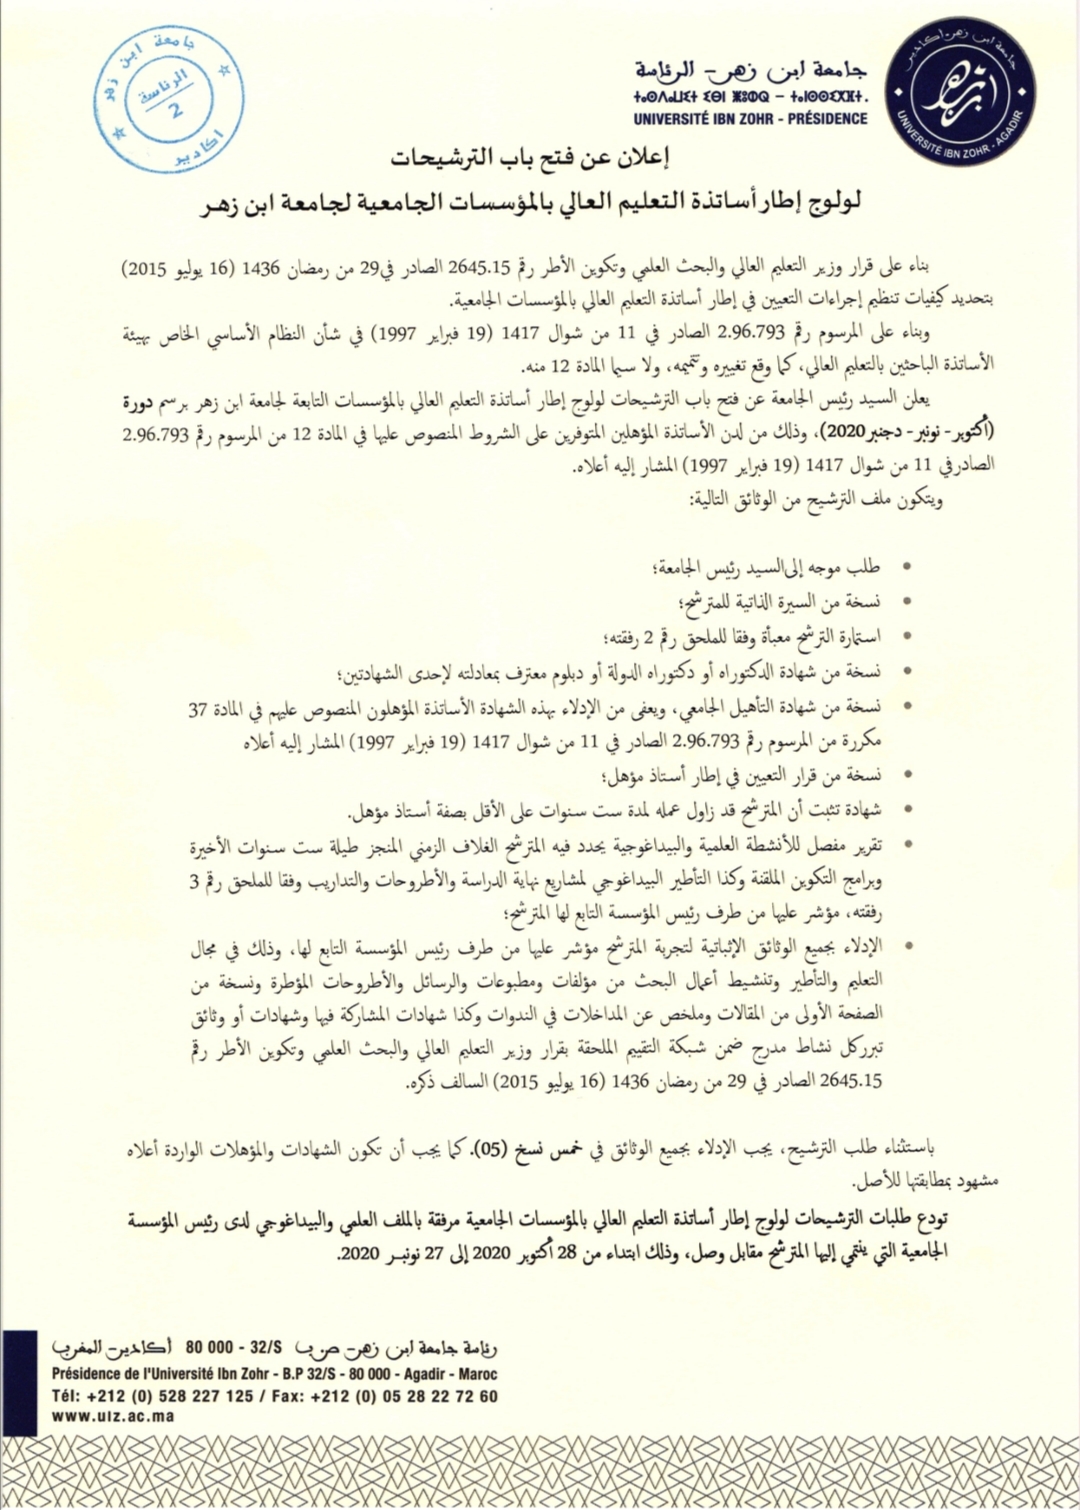 جامعة ابن زهر
الرئاسة
2
اكادير
جامعة ابن زهر - الرئاسة
ⵜⴰⵙⴷⴰⵡⵉⵜ ⵉⴱⵏ ⵣⵓⵀⵕ – ⵜⴰⵏⵙⵙⵉⵅⴼⵜ.
UNIVERSITÉ IBN ZOHR - PRÉSIDENCE
جامعة ابن زهر-أكادير
UNIVERSITÉ IBN ZOHR - AGADIR
إعلان عن فتح باب الترشيحات
لولوج إطار أساتذة التعليم العالي بالمؤسسات الجامعية لجامعة ابن زهر
بناء على قرار وزير التعليم العالي والبحث العلمي وتكوين الأطر رقم 2645.15 الصادر في29 من رمضان 1436 (16 يوليو 2015)
بتحديد كيفيات تنظيم إجراءات التعيين في إطار أساتذة التعليم العالي بالمؤسسات الجامعية.
وبناء على المرسوم رقم 2.96.793 الصادر في 11 من شوال 1417 (19 فبراير 1997) في شأن النظام الأساسي الخاص بهيئة
الأساتذة الباحثين بالتعليم العالي، كما وقع تغييره وتتميمه، ولا سيما المادة 12 منه.
يعلن السيد رئيس الجامعة عن فتح باب الترشيحات لولوج إطار أساتذة التعليم العالي بالمؤسسات التابعة لجامعة ابن زهر برسم دورة
(أكتوبر- نونبر- دجنبر2020)، وذلك من لدن الأساتذة المؤهلين المتوفرين على الشروط المنصوص عليها في المادة 12 من المرسوم رقم 2.96.793
الصادرفي 11 من شوال 1417 (19 فبراير 1997) المشار إليه أعلاه.
ويتكون ملف الترشيح من الوثائق التالية:
• طلب موجه إلى السيد رئيس الجامعة؛
• نسخة من السيرة الذاتية للمترشح؛
• استمارة الترشح معبأة وفقا للملحق رقم 2 رفقته؛
• نسخة من شهادة الدكتوراه أو دكتوراه الدولة أو دبلوم معترف بمعادلته لإحدى الشهادتين؛
• نسخة من شهادة التأهيل الجامعي، ويعفى من الإدلاء بهذه الشهادة الأساتذة المؤهلون المنصوص عليهم في المادة 37
مكررة من المرسوم رقم 2.96.793 الصادر في 11 من شوال 1417 (19 فبراير 1997) المشار إليه أعلاه
• نسخة من قرار التعيين في إطار أستاذ مؤهل؛
• شهادة تثبت أن المترشح قد زاول عمله لمدة ست سنوات على الأقل بصفة أستاذ مؤهل.
• تقرير مفصل للأنشطة العلمية والبيداغوجية يحدد فيه المترشح الغلاف الزمني المنجز طيلة ست سنوات الأخيرة
وبرامج التكوين الملقنة وكذا التأطير البيداغوجي لمشاريع نهاية الدراسة والأطروحات والتداريب وفقا للملحق رقم 3
رفقته، مؤشر عليها من طرف رئيس المؤسسة التابع لها المترشح؛
• الإدلاء بجميع الوثائق الإثباتية لتجربة المترشح مؤشر عليها من طرف رئيس المؤسسة التابع لها، وذلك في مجال
التعليم والتأطير وتنشيط أعمال البحث من مؤلفات ومطبوعات والرسائل والأطروحات المؤطرة ونسخة من
الصفحة الأولى من المقالات وملخص عن المداخلات في الندوات وكذا شهادات المشاركة فيها وشهادات أو وثائق
تبرركل نشاط مدرج ضمن شبكة التقييم الملحقة بقرار وزير التعليم العالي والبحث العلمي وتكوين الأطر رقم
2645.15 الصادر في 29 من رمضان 1436 (16 يوليو 2015) السالف ذكره.
باستثناء طلب الترشيح، يجب الإدلاء بجميع الوثائق في خمس نسخ (05). كما يجب أن تكون الشهادات والمؤهلات الواردة أعلاه
مشهود بمطابقتها للأصل.
تودع طلبات الترشيحات لولوج إطار أساتذة التعليم العالي بالمؤسسات الجامعية مرفقة بالملف العلمي والبيداغوجي لدى رئيس المؤسسة
الجامعية التي ينتمي إليها المترشح مقابل وصل، وذلك ابتداء من 28 أكتوبر 2020 إلى 27 نونبر 2020.
رئاسة جامعة ابن زهر- ص ب 32/S - 80 000 أكادير- المغرب
Présidence de l'Université Ibn Zohr - B.P 32/S - 80 000 - Agadir - Maroc
Tél: +212 (0) 528 227 125 / Fax: +212 (0) 05 28 22 72 60
www.uiz.ac.ma